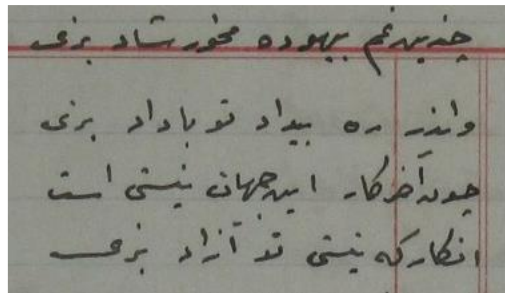 چندین غم بیهوده مخور شاد بزی
واندر ره بیداد تو با داد بزی
چون آخر کار این جهان نیستی است
انگار که نیستی تو آزاد بزی